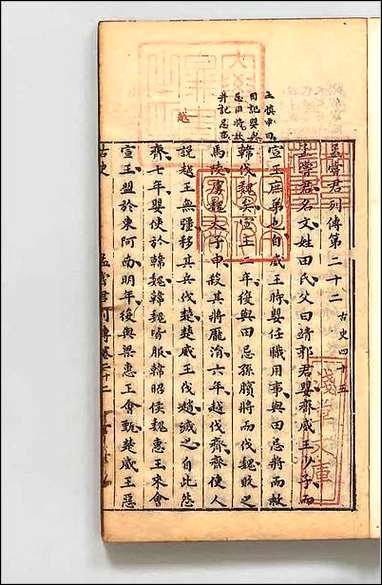 孟嘗君列傳第二十二 古史四十五
孟嘗君名文姓田氏父曰靖郭君嬰齊威王少子而
宣王庶弟也自威王時嬰任職用事與田忌將而救
韓伐魏矣宣王二年復與田忌孫臏將而伐魏敗之
馬陵虜魏太子申殺其將龐涓六年越伐齊齊使人
說越王無彊移其兵伐楚楚威王伐越滅之自此怨
齊七年嬰使於韓魏韓魏皆服韓昭侯魏惠王來會
宣王盟於東阿南明年復與梁惠王會甄楚威王惡
古史 孟嘗君列傳
淺草文庫